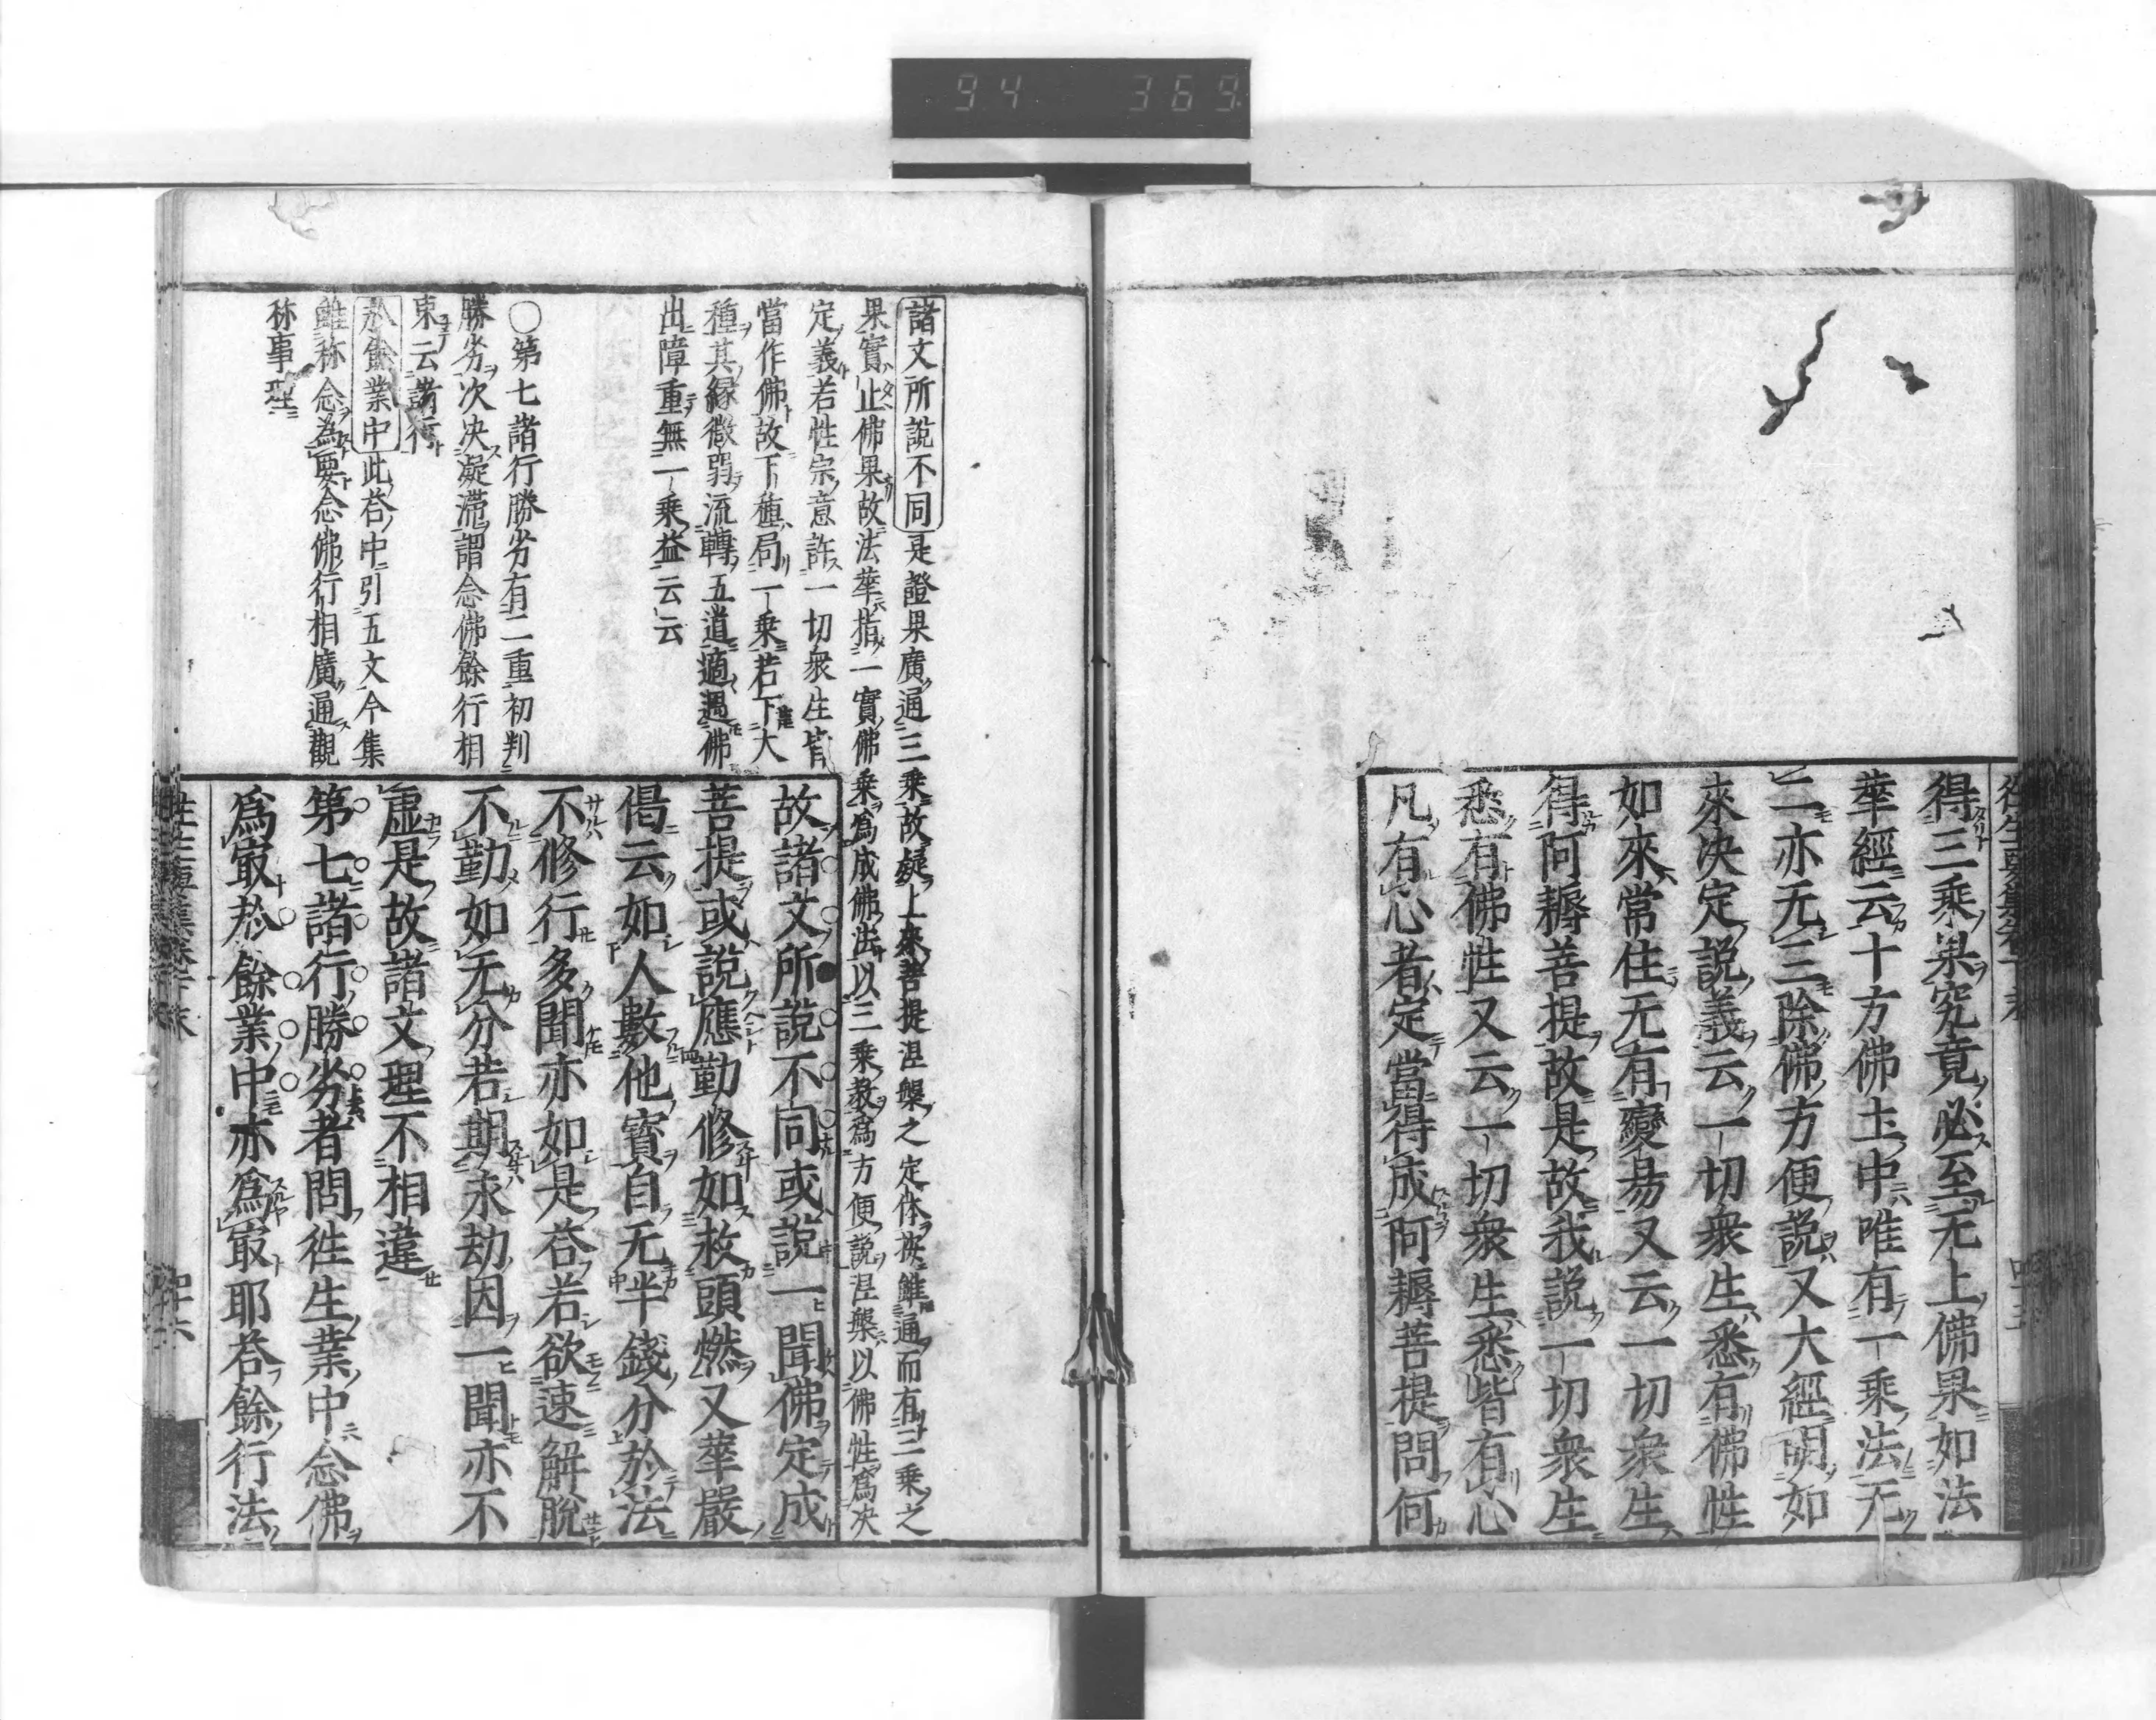 94 369
得三乘果究竟必至无上佛果如法
華經云十方佛土中唯有一乘法无
二亦无三除佛方便説又大經明如
來决定説義云一切衆生悉有佛性
如來常住无有變易又云一切衆生
得阿耨菩提故是故我説一切衆生
悉有佛性又云一切衆生悉皆有心
凡有心者定當得成阿耨菩提問何
諸文所説不同是證果廣通三乘故疑上來菩提涅槃之定体按雖通而有三乘之
果實止佛果故法華指一實佛乘為成佛法以三乘教為方便説涅槃以佛性爲决
定義若性宗意許一切衆生皆
當作佛故下種局一乘若下大
種其縁微弱流轉五道適遇佛
出障重無一乘益云云
故諸文所説不同或説一聞佛定成
菩提或説應勤修如救頭燃又華嚴
偈云如人數他寳自无半錢分於法
不修行多聞亦如是荅若欲速解脱
不勤如无分若期永劫因一聞亦不
虚是故諸文理不相違
○第七諸行勝劣有二重初判
勝劣次决凝滞謂念佛餘行相
東云諸行
第七諸行勝劣者問徃生業中念佛
爲㝡於餘業中亦爲㝡耶荅餘行法
於餘業中此荅中引五文今集
雖称念為要念佛行相廣通觀
称事理